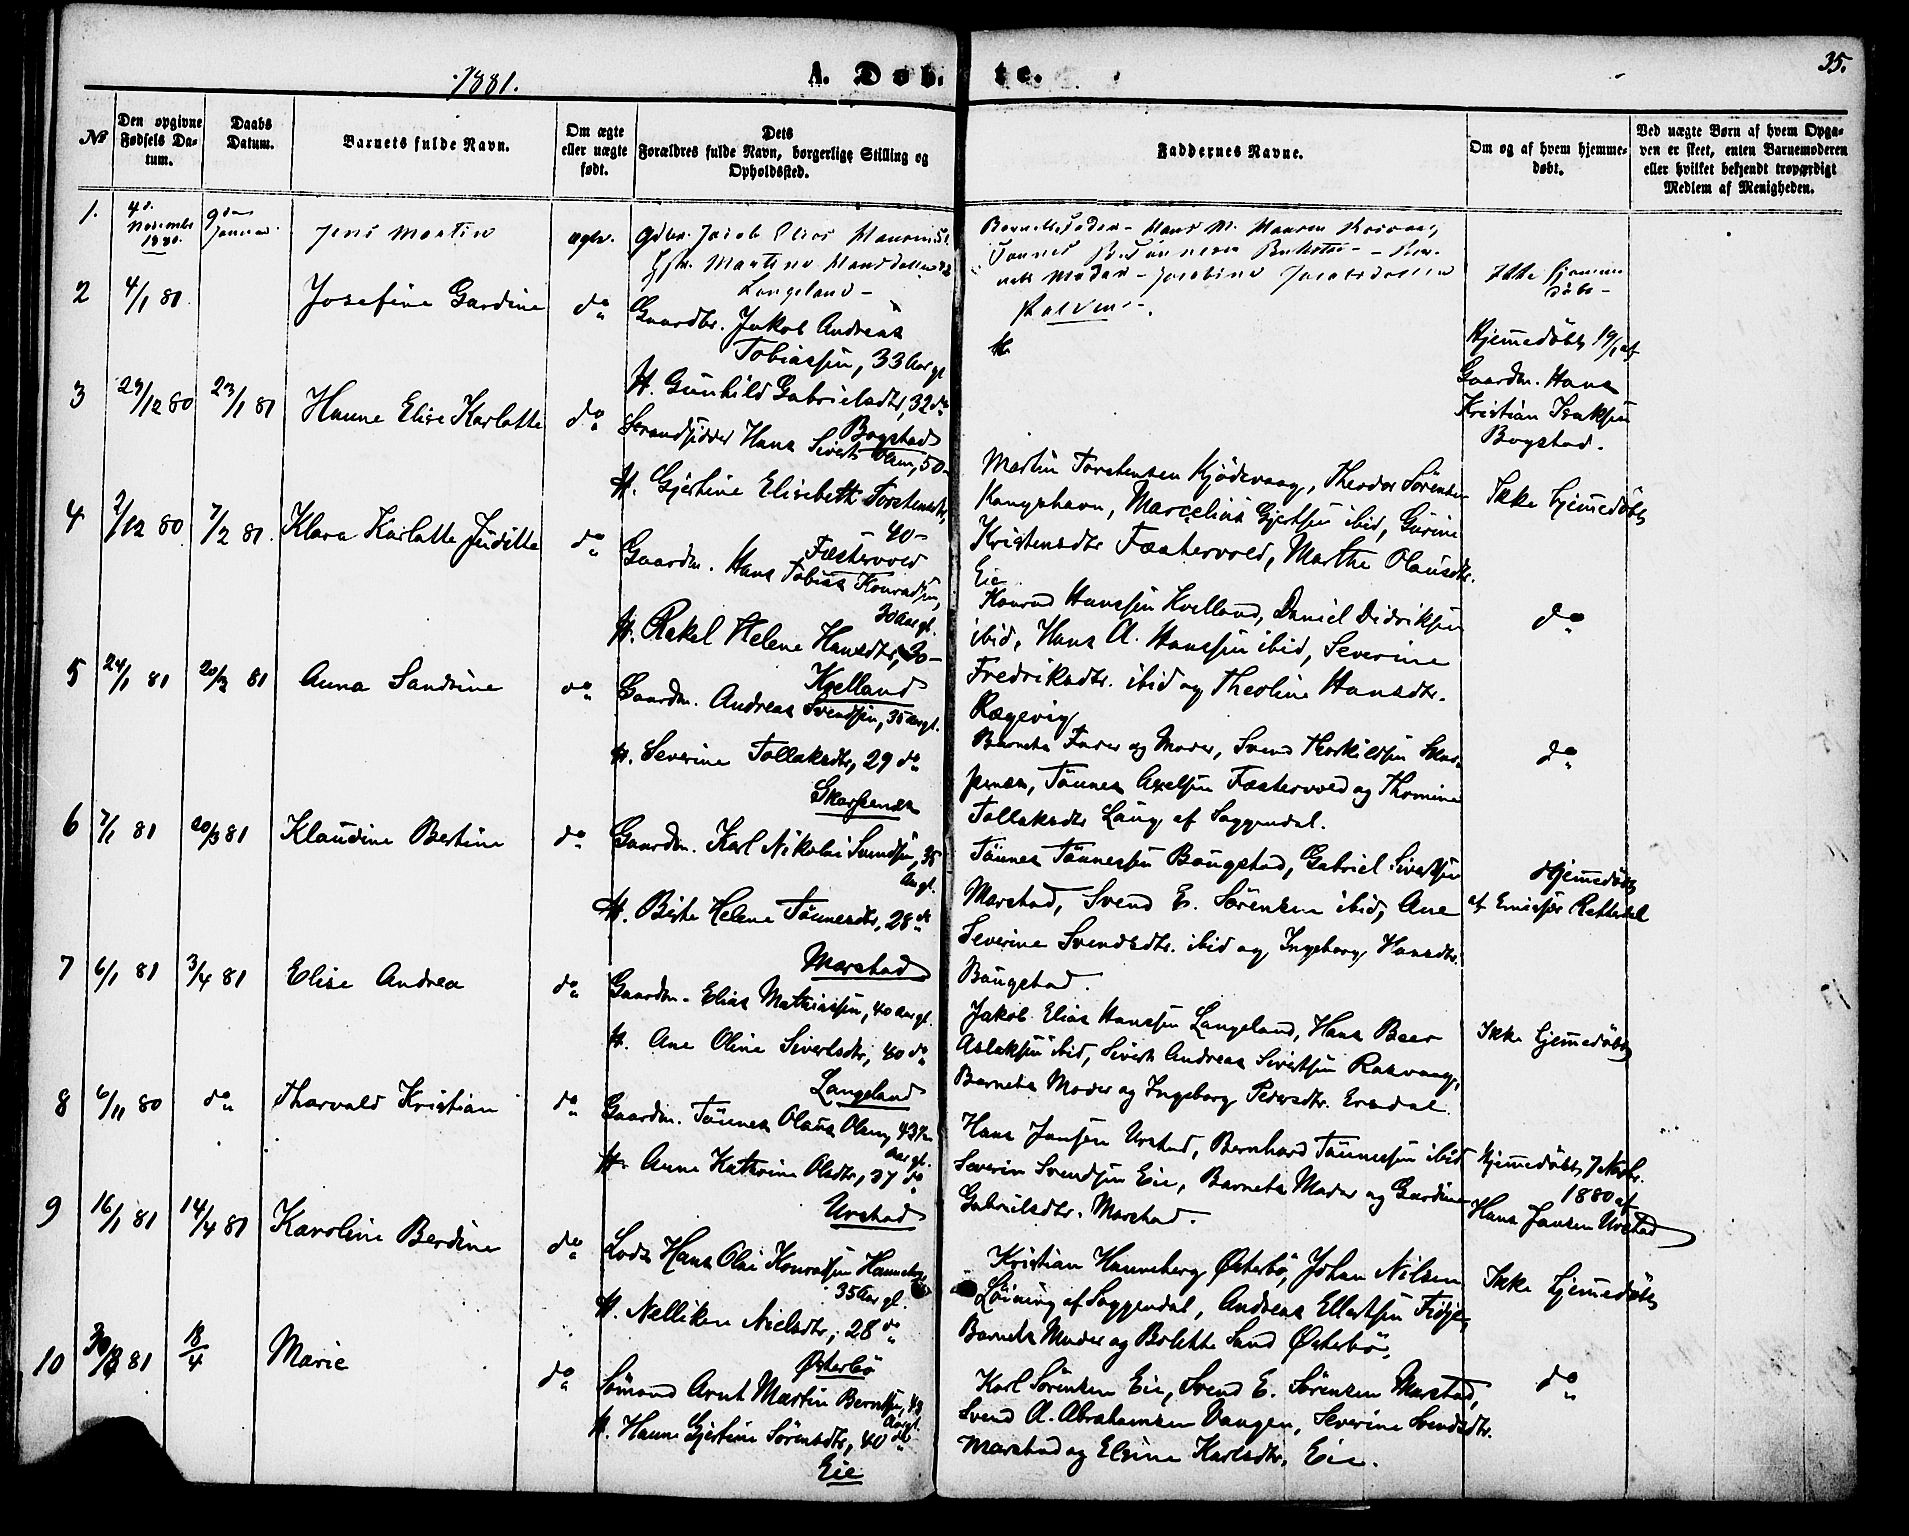 35.
1881.
A. Døbte.
No
Den opgivne Fødsels Datum.
Daabs Datum.
Barnets fulde Navn.
Om ægte eller uægte født.
Dets Forældres fulde Navn, borgerlige Stilling og Opholdssted.
Faddernes Navne.
Om og af hvem hjemmedøbt.
Ved uægte Børn af hvem Opgaven er skeet, enten Barnemoderen eller hvilket bekjendt troværdigt Medlem af Menigheden.
1.
November 1880.
Januar
Jens Martin
Jacob Elias Hansen
Langeland
Ikke hjemmedøbt
2
4/1 81
Josefine Gardine
do
Gaardbr. Jakob Andreas
Tobiassen, 33 Aar gl
H. Gunhild Gabrielsdtr, 32 do
Bogstad
Hjemmedøbt 19/1 af
Gaardm. Hans
Kristian Isaksen
Bogstad.
3
29/12 80
23/1 81
Hanne Elise Karlotte
do
Strandsidder Hans Sivert Olsen, 50
H. Gjertine Elisebeth Torstensdtr,
40
Fæstervold
Martin Torstensen Kjødevaag, Theodor Sørensen
Kongshavn, Marcelius Gjertsen ibid, Gurine
Kristensdtr Fæstervold, Marthe Olausdtr.
Eie
Ikke hjemmedøbt
4
2/12 80
7/2 81.
Klara Karlotte Juditte
do
Gaardm. Hans Tobias Konradsen,
30 Aar gl.
H. Rakel Helene Hansdtr, 30
Kvelland
Konrad Hanssen Kvelland, Daniel Didriksen
ibid, Hans A. Hanssen ibid, Severine
Fredriksdtr. ibid og Theoline Hansdtr.
Rægevig
do
5
24/1 81
20/3 81
Anna Sandrine
do
Gaardm. Andreas Svendsen, 35 Aar gl.
H. Severine Tollaksdtr, 29 do
Skarpenes
Barnets Fader og Moder, Svend Thorkildsen Skarpenes,
Tønnes Axelsen Fæstervold og Thomine
Tollaksdtr Laug af Soggendal.
do
6
7/1 81
20/3 81
Klaudine Bertine
do
Gaardm. Karl Nikolai Svendsen, 35
Aar gl.
H. Birte Helene Tønnesdtr, 28 do
Marstad
Tønnes Tønnessen Baugstad, Gabriel Sivertsen
Marstad, Svend E. Sørensen ibid, Ane
Severine Svendsdtr. ibid og Ingeborg Hansdtr.
Baugstad.
Hjemmedøbt
af Emissær Rettedal
7
6/1 81
3/4 81
Elise Andrea
do
Gaardm. Elias Mathiassen, 40 Aar gl.
H. Ane Oline Sivertsdtr, 40 do
Langeland
Jakob Elias Hanssen Langeland, Hans Beer
Aslaksen ibid, Sivert Andreas Sivertsen Rasvaag,
Barnets Moder og Ingeborg Pedersdtr. Ersdal.
Ikke hjemmedøbt
8
6/11 80
do
Tharvald Kristian
do
Gaardm. Tønnes Olaus Olsen, 43
Aar gl.
H. Anne Kathrine Olsdtr, 37 do
Urstad
Hans Jansen Urstad, Bernhard Tønnessen ibid
Severin Svendsen Eie, Barnets Moder og Gurdine
Gabrielsdtr. Marstad.
Hjemmedøbt 7 Novbr.
1880 af
Hans Jansen Urstad
9
16/1 81
14/4 81
Karoline Berdine
do
Lods Hans Olai Konradsen Hanneberg
35 Aar gl.
H. Nelliken Nielsdtr, 28 do
Østerbø
Kristian Hanneberg Østerbø, Johan Nilsen
Løining af Soggendal, Andreas Ellertsen Fidje,
Barnets Moder og Bolette Sand Østerbø.
Ikke hjemmedøbt
10
81
18/4
Marie
do
Sømand Arnt Martin Berntsen, 43
Aar gl.
H. Hanne Gjertine Sørensdtr, 40 do
Eie
Karl Sørensen Eie, Svend E. Sørensen Marstad,
Svend A. Abrahamsen Vangen, Severine Svendsdtr.
Marstad og Elvine Karlsdtr. Eie.
do